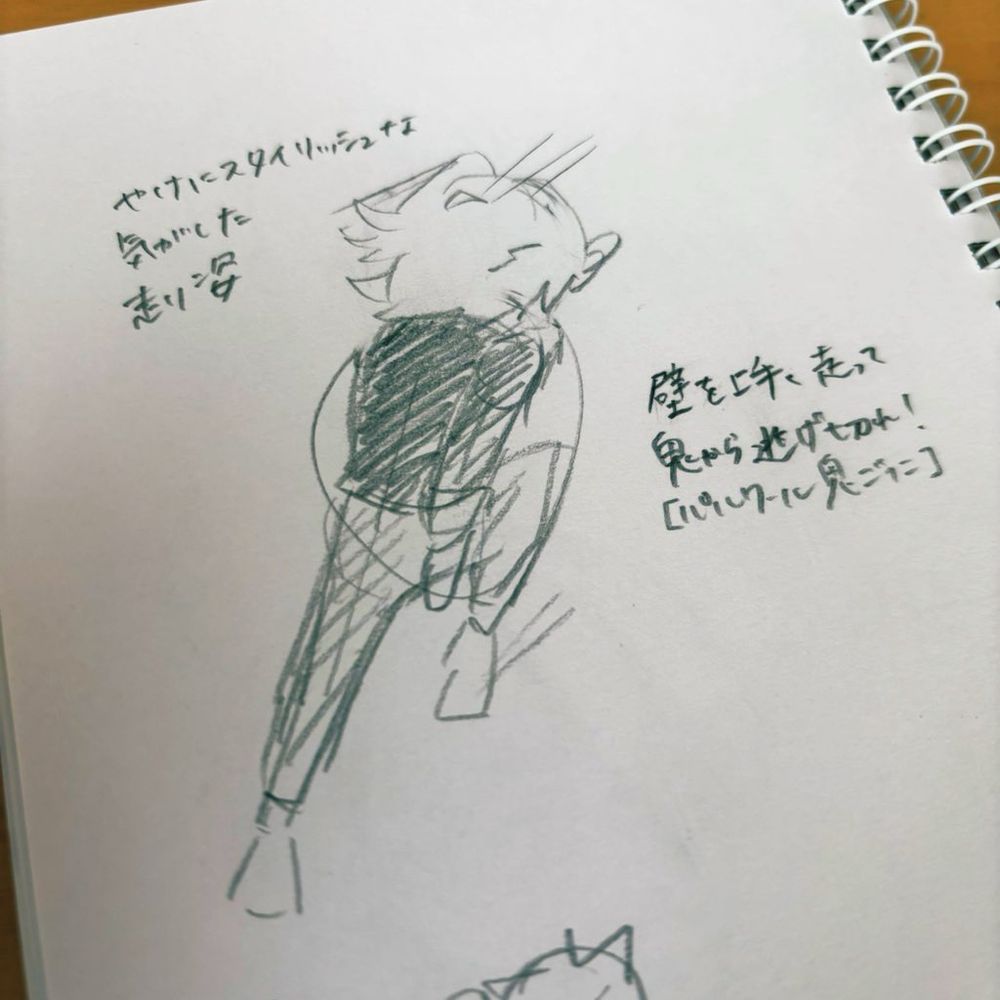 やけにスタイリッシュな
気がした
走り姿
壁を上手く走って
鬼から逃げ切れ!
[パルクール鬼ごっこ]